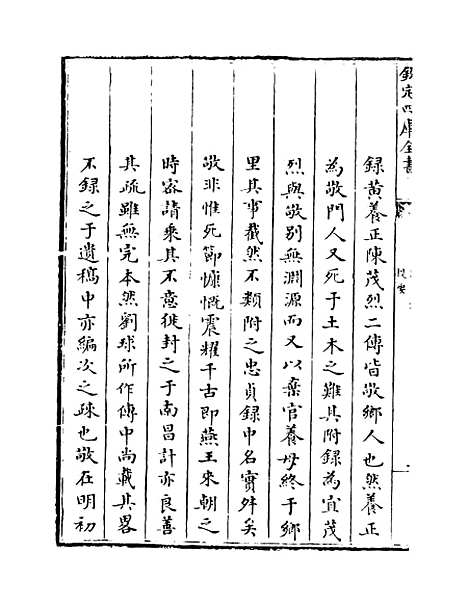 欽定四庫全書
提要
錄黄養正陳茂烈二傳皆敬鄉人也然養正
為敬門人又死于土木之難其附録為宜茂
烈與敬別無淵源而又以棄官養母終于鄉
里其事截然不類附之忠貞録中名實舛矣
敬非惟死節慷慨震耀千古即燕王來朝之
時密請乗其不意徙封之于南昌計亦良善
其疏雖無完本然劉球所作傳中尚載其畧
不錄之于遺稿中亦編次之疎也敬在明初